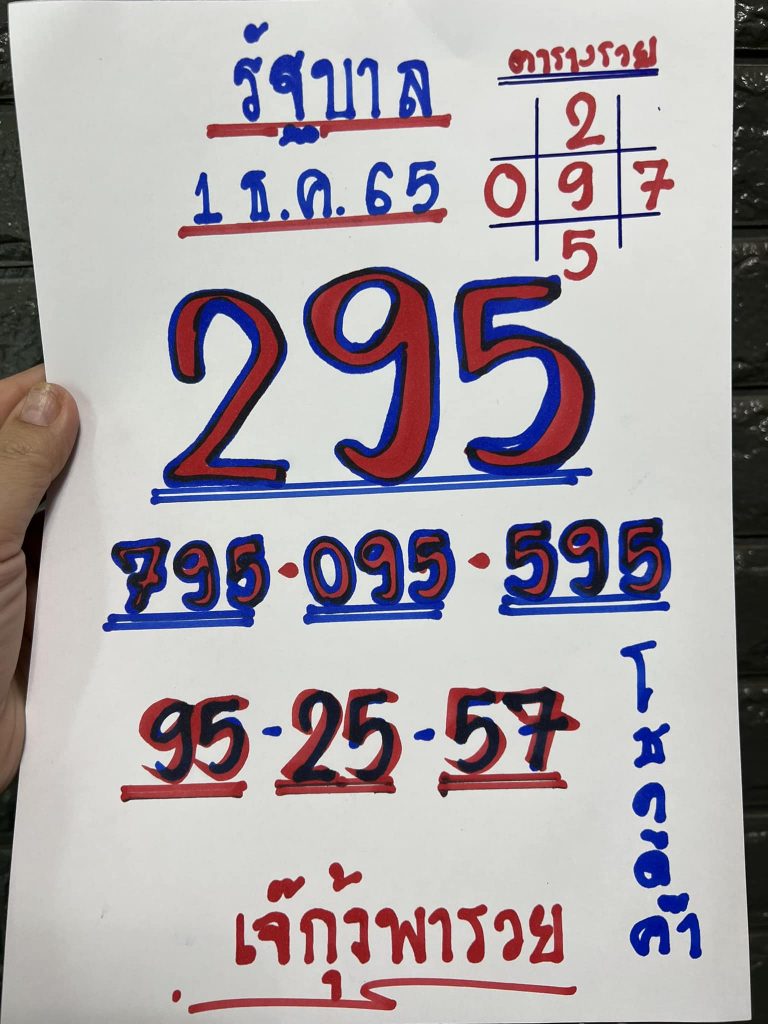 รัฐบาล
1 ธ.ค. 65
ตารางรวย
2
0 9 7
5
295
795 • 095 • 595
95 - 25 - 57
โชคดีค่ะ
เจ๊กุ้งพารวย